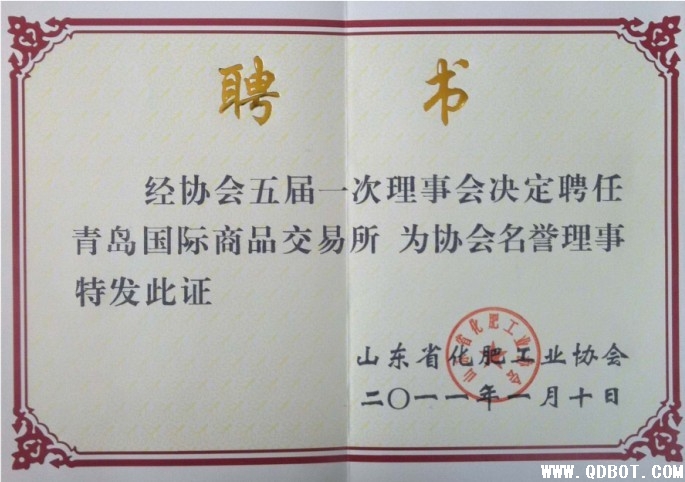 聘书
经协会五届一次理事会决定聘任
青岛国际商品交易所 为协会名誉理事
特发此证
山东省化肥工业协会
山东省化肥工业协会
二〇一一年一月十日
WWW.QDBOT.COM